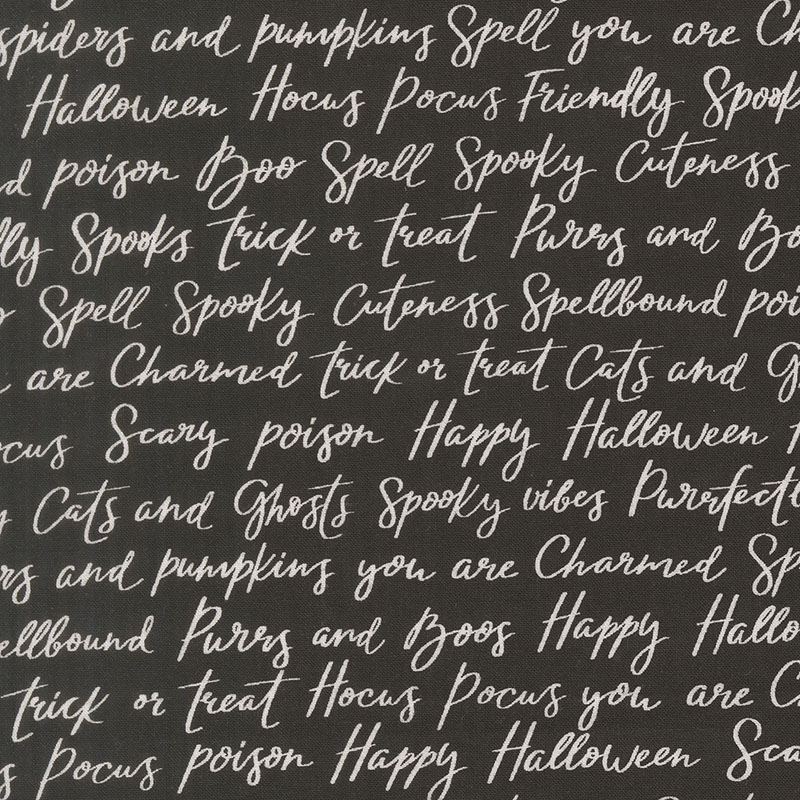 spiders and pumpkins Spell you are Ch
Halloween Hocus Pocus Friendly Spook
d poison Boo Spell Spooky Cuteness
lly Spooks trick or treat Purrs and Bo
y Spell Spooky Cuteness Spellbound poi
are Charmed trick or treat Cats and G
ocus Scary poison Happy Halloween
y Cats and Ghosts Spooky vibes Purrfectl
rs and pumpkins you are Charmed Sp
ellbound Purrs and Boos Happy Hallo
trick or treat Hocus Pocus you are C
s Pocus poison Happy Halloween Sca